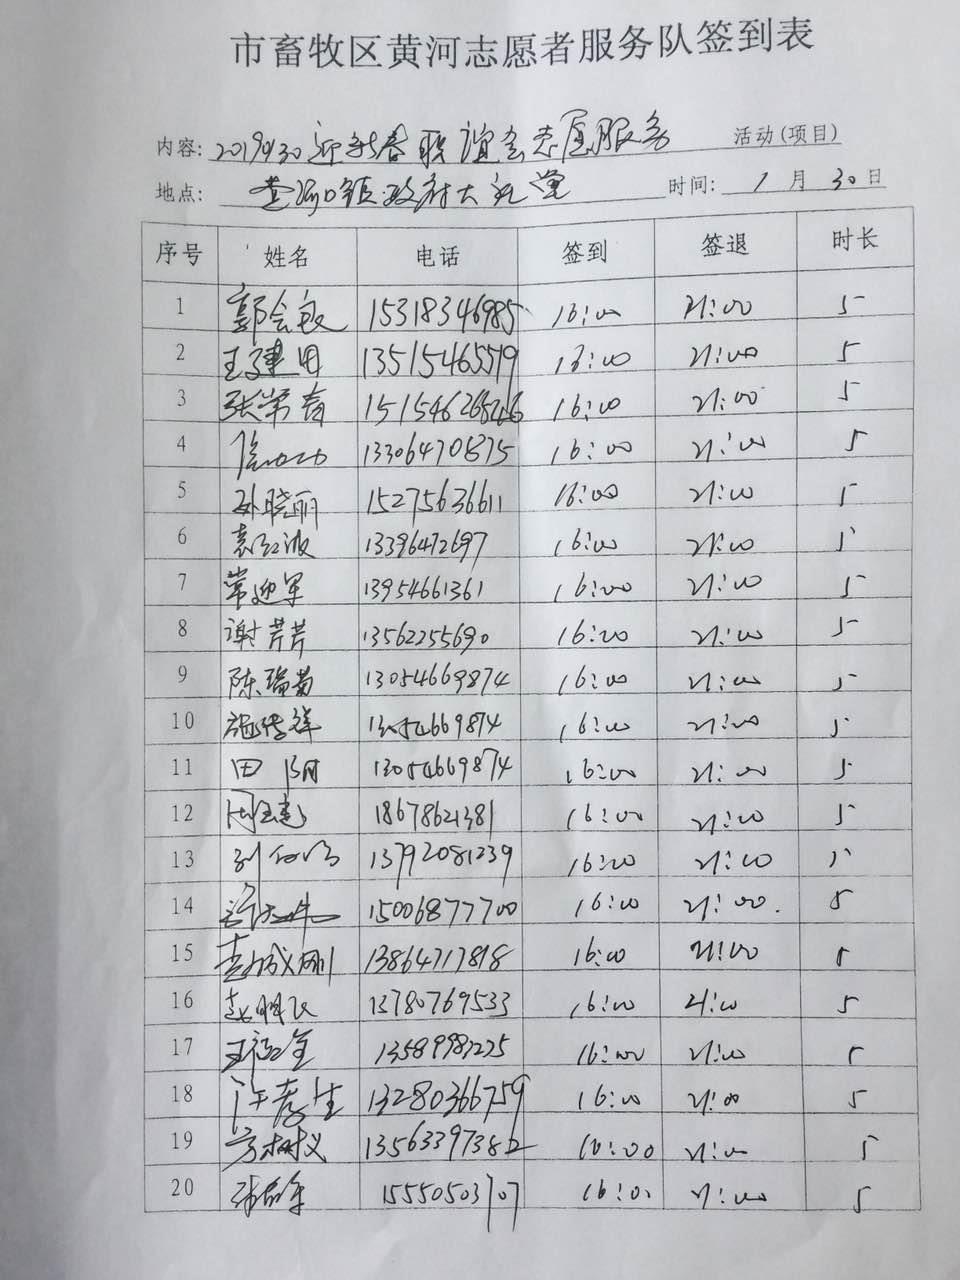 市畜牧区黄河志愿者服务队签到表
内容: 2019.1.30迎新春联谊会志愿服务 活动(项目)
地点: 黄河口镇政府大礼堂 时间: 1月30日
序号 姓名 电话 签到 签退 时长
1 郭会良 15318346985 16:00 21:00 5
2 王建国 13515465519 16:00 21:00 5
3 张荣 16:00 21:00 5
4 13306470875 16:00 21:00 5
5 孙晓丽 15275636611 16:00 21:00 5
6 袁红波 13396472697 16:00 21:00 5
7 常迎军 13954661361 16:00 21:00 5
8 谢芹芹 13562255690 16:00 21:00 5
9 陈瑞菊 13054669874 16:00 21:00 5
10 13054669874 16:00 21:00 5
11 田 13054669874 16:00 21:00 5
12 周 18678621381 16:00 21:00 5
13 13792081239 16:00 21:00 5
14 15006877700 16:00 21:00 5
15 成刚 13864717818 16:00 21:00 5
16 赵 13780769533 16:00 21:00 5
17 王 13589987225 16:00 21:00 5
18 许孝生 13280366759 16:00 21:00 5
19 方树义 13563397382 16:00 21:00 5
20 张 15550503707 16:00 21:00 5